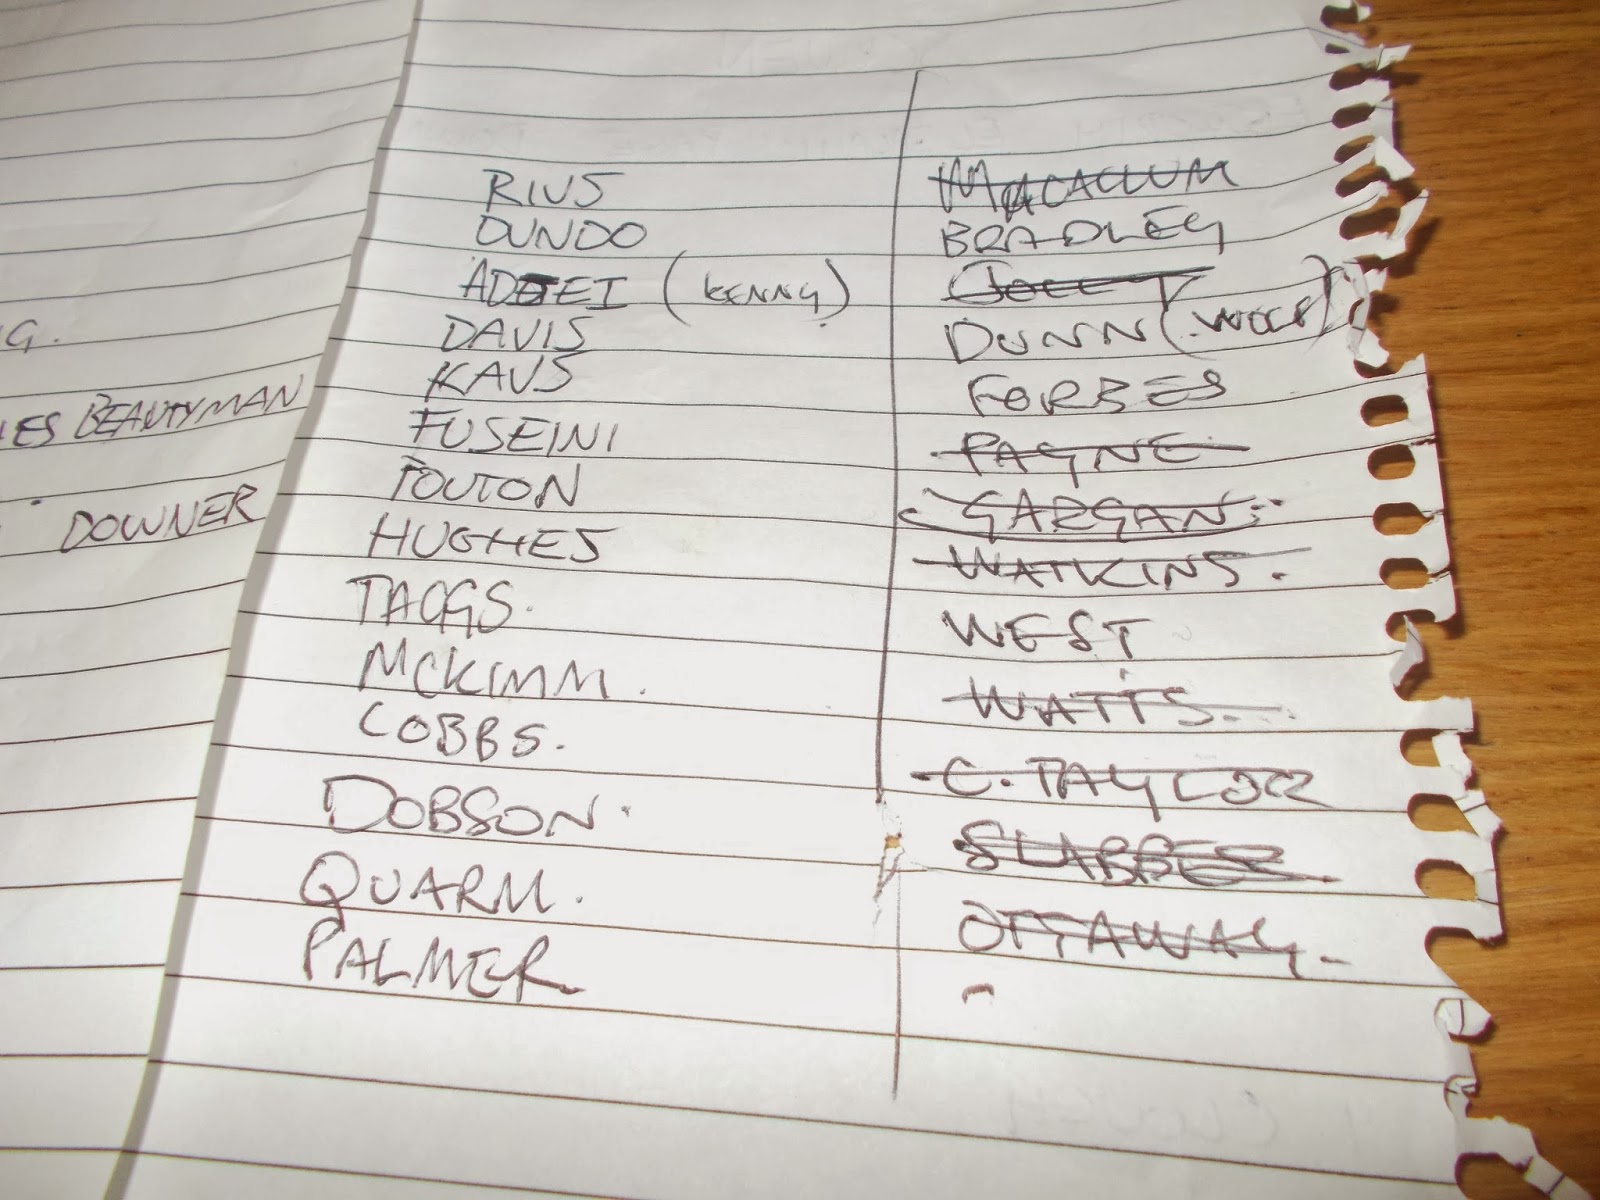 RIUS
DUNDO
ADJEI (KENNY)
DAVIS
KAUS
FUSEINI
POUTON
HUGHES
TAGGS.
MCKIMM.
COBBS.
DOBSON.
QUARM.
PALMER
MACALLUM
BRADLEY
DUNN
FORBES
PAYNE
GARGAN
WATKINS.
WEST
WATTS.
C. TAYLOR
SLABBER
OTTAWAY.
G.
BEAUTYMAN
DOWNER